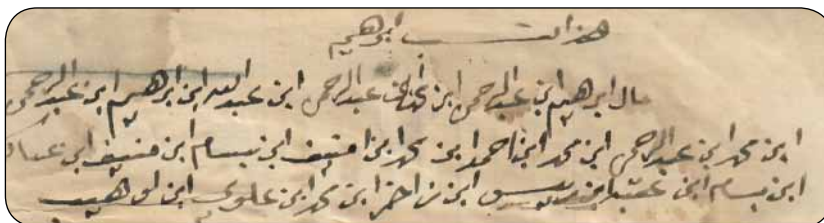 هذا نسب ابرهيم
مال ابرهيم ابن عبدالرحمن ابن محمد ابن عبدالرحمن ابن عبدالله ابن ابرهيم ابن عبدالرحمن
ابن محمد ابن عبدالرحمن ابن محمد ابن احمد ابن محمد ابن منيف ابن بسام ابن منيف ابن عساكر
ابن بسام ابن عقبه ابن ريس ابن زاخر ابن محمد ابن علوي ابن اوهيب